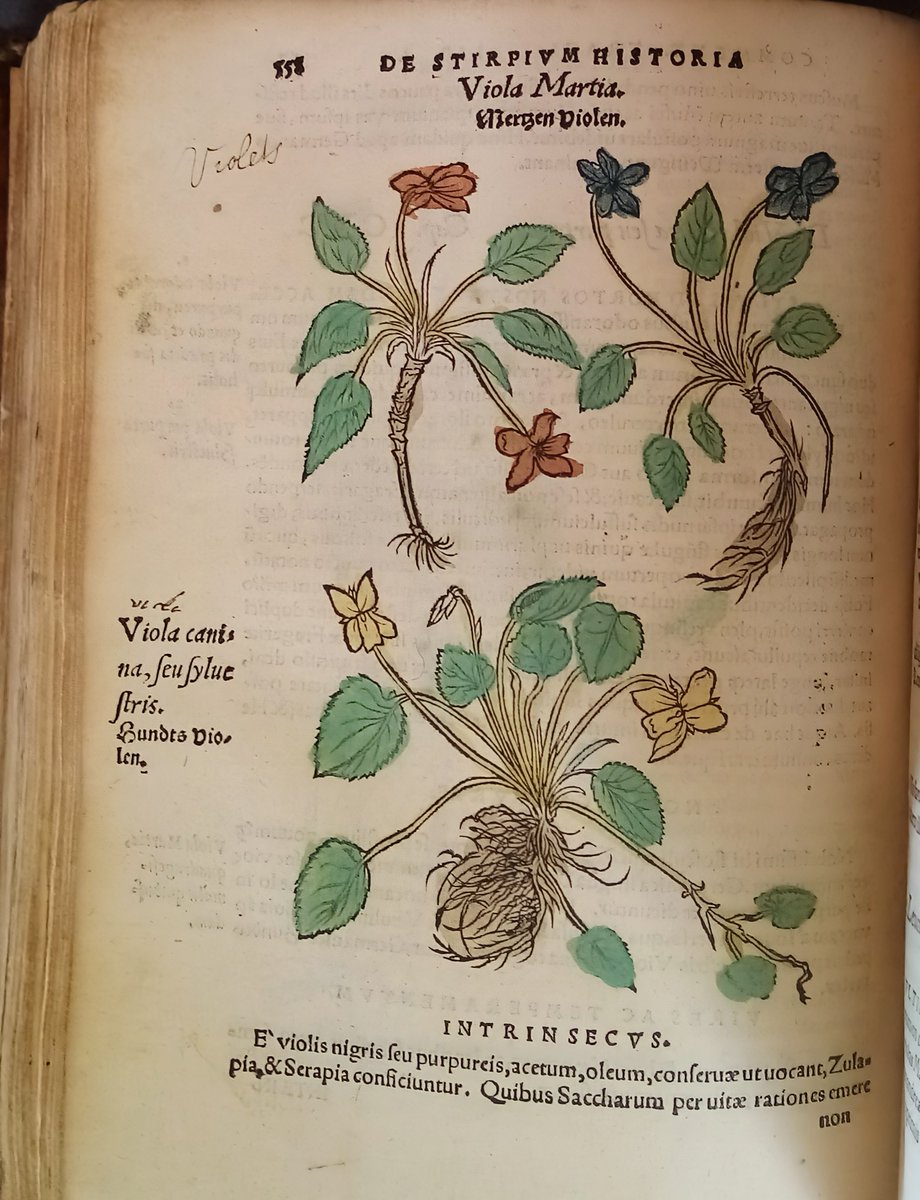 558 DE STIRPIVM HISTORIA
Viola Martia.
Mertzen Violen.
Violets
Viola cani-
na, ſeu ſylue
ſtris.
Hundts Vio-
len.
INTRINSECVS.
E` violis nigris ſeu purpureis, acetum, oleum, conſeruæ ut uocant, Zula-
pia, & Serapia conficiuntur. Quibus Saccharum per uitæ rationes emere
non